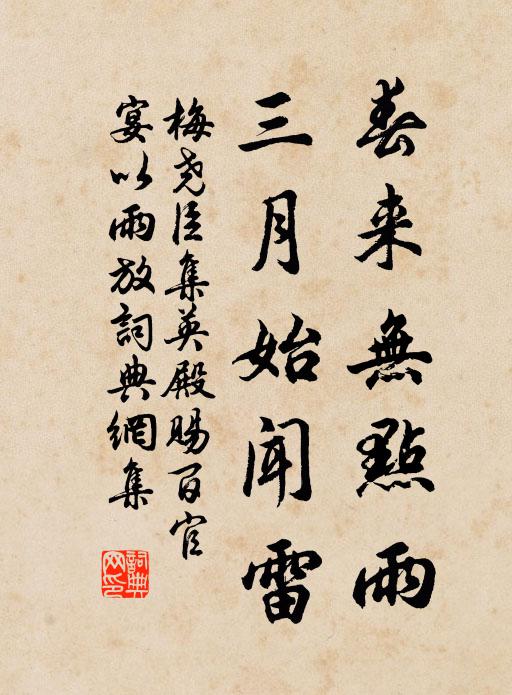 春来無點雨
三月始闻雷
梅尧臣集英殿賜百官
宴以雨放詞典網集
詞典
网印